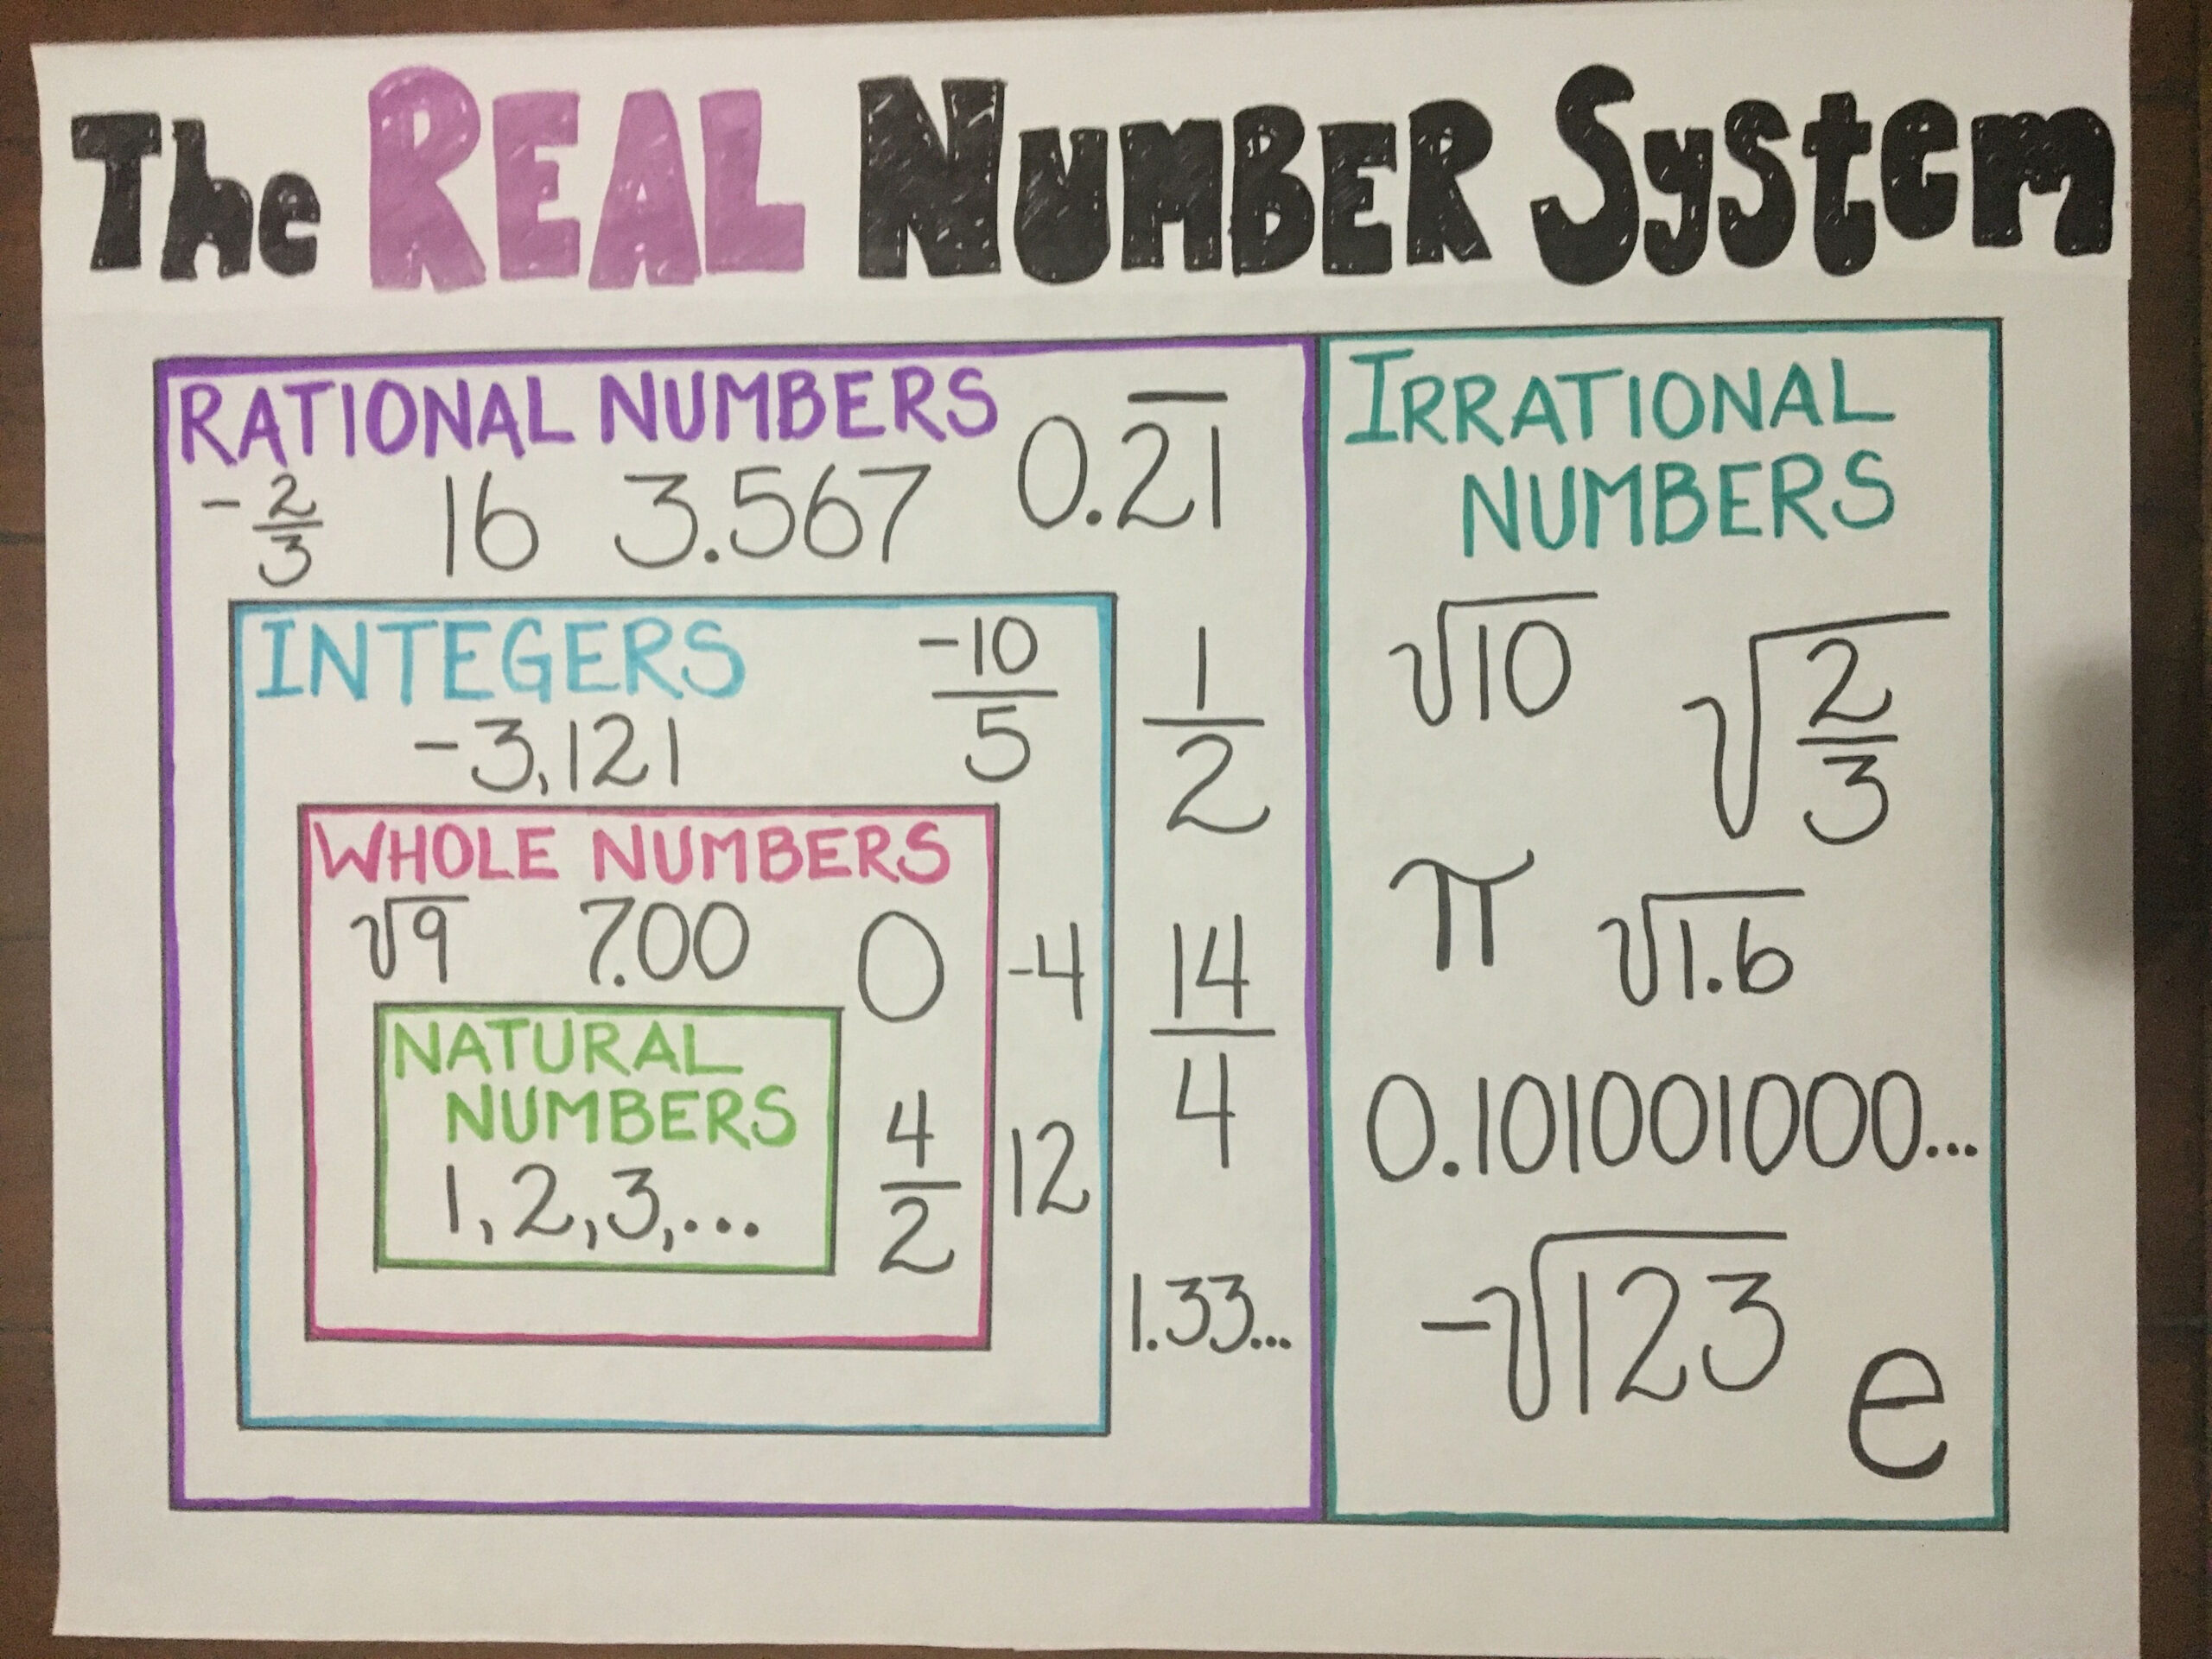 The REAL NUMBER System
RATIONAL NUMBERS
0.2̅1̅
-2/3 16 3.567
INTEGERS
-10/5
-3,121
1/2
WHOLE NUMBERS
√9 7.00 0
-4
14/4
NATURAL
NUMBERS
1, 2, 3, ...
4/2
12
1.33...
IRRATIONAL
NUMBERS
√10
√2/3
π √1.6
0.101001000...
-√123
e